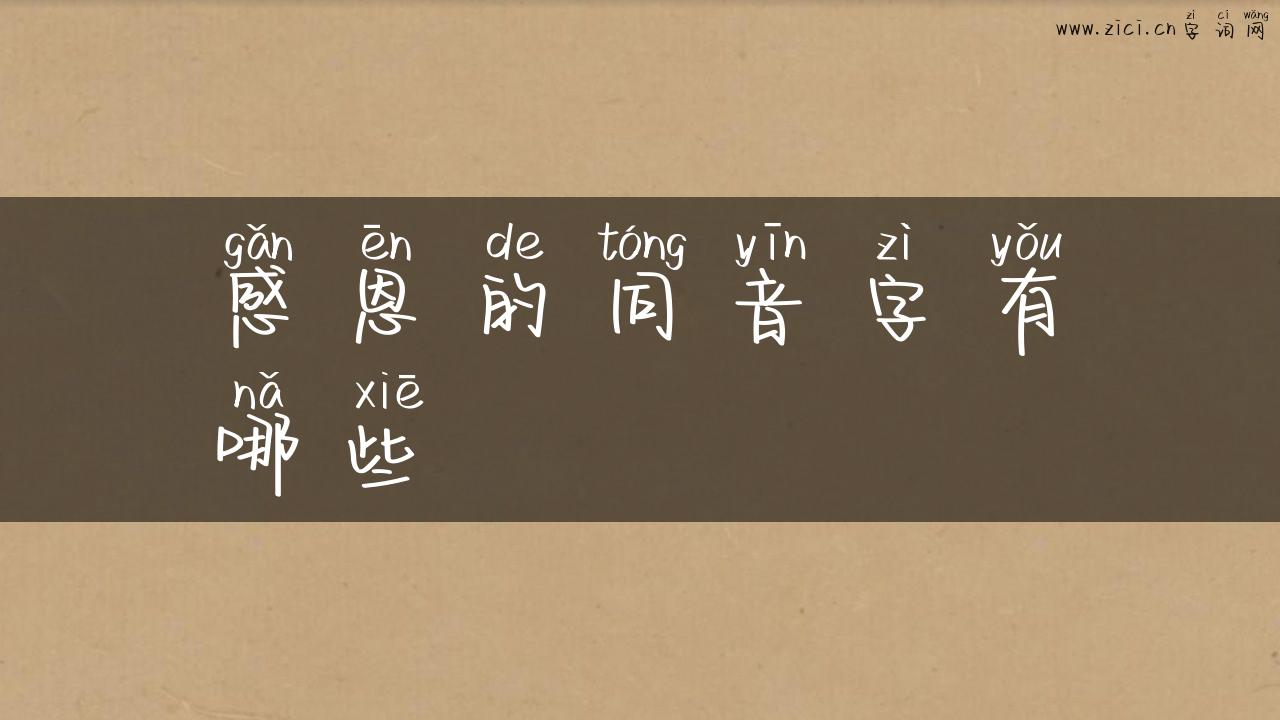 zì cí wǎng
www.zici.cn 字 词 网
gǎn ēn de tóng yīn zì yǒu
感 恩 的 同 音 字 有
nǎ xiē
哪 些